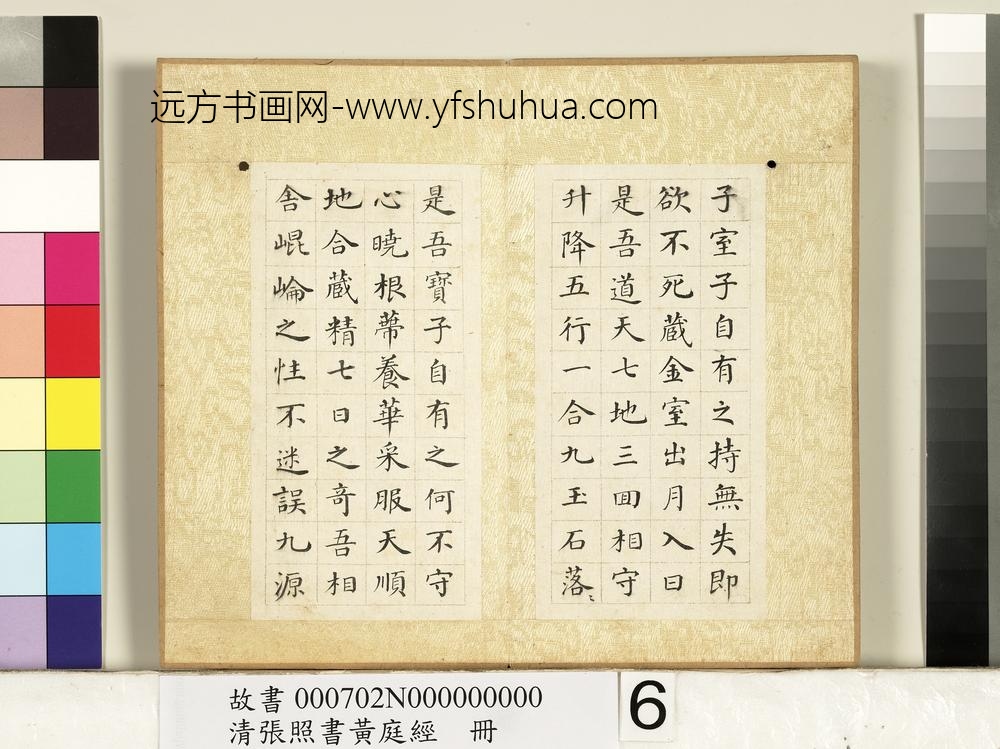 远方书画网-www.yfshuhua.com
子室子自有之持無失即
欲不死蔵金室出月入日
是吾道天七地三回相守
升降五行一合九玉石落〻
是吾寶子自有之何不守
心曉根蔕養華采服天順
地合蔵精七日之奇吾相
舎崐崘之性不迷誤九源
故書 000702N000000000
清張照書黃庭經 冊
6